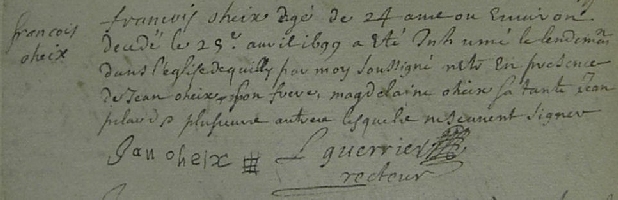 françois oheix
francois oheix agé de 24 ans ou Environ
decedé le 28e avril 1699 a Eté Inhumé le lendemain
dans l'eglise de quilly par moy soussigné en presence
de Jean oheix son frere, magdelaine oheix sa tante Jean
plusieurs autres lesquels ne scauent signer
Jan oheix L guerrier
recteur